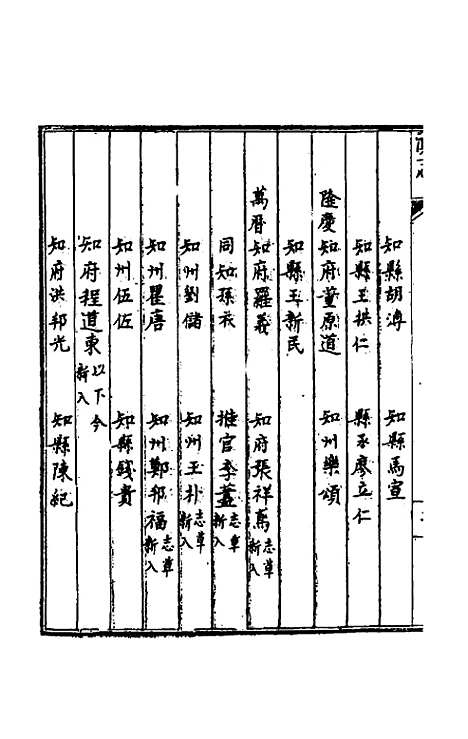 知縣胡溥　知縣馬宣
知縣王拱仁　縣丞廖立仁
隆慶　知府董原道　知州樂頌
知縣王新民
萬曆　知府羅義　知府張祥鳶志草新入
同知孫衣　推官李蓋志草新入
知州劉儲　知州王朴志草新入
知州瞿唐　知州鄭邦福志草新入
知州伍佐　知縣錢貴
知府程道東以下今新入
知府洪邦光　知縣陳紀